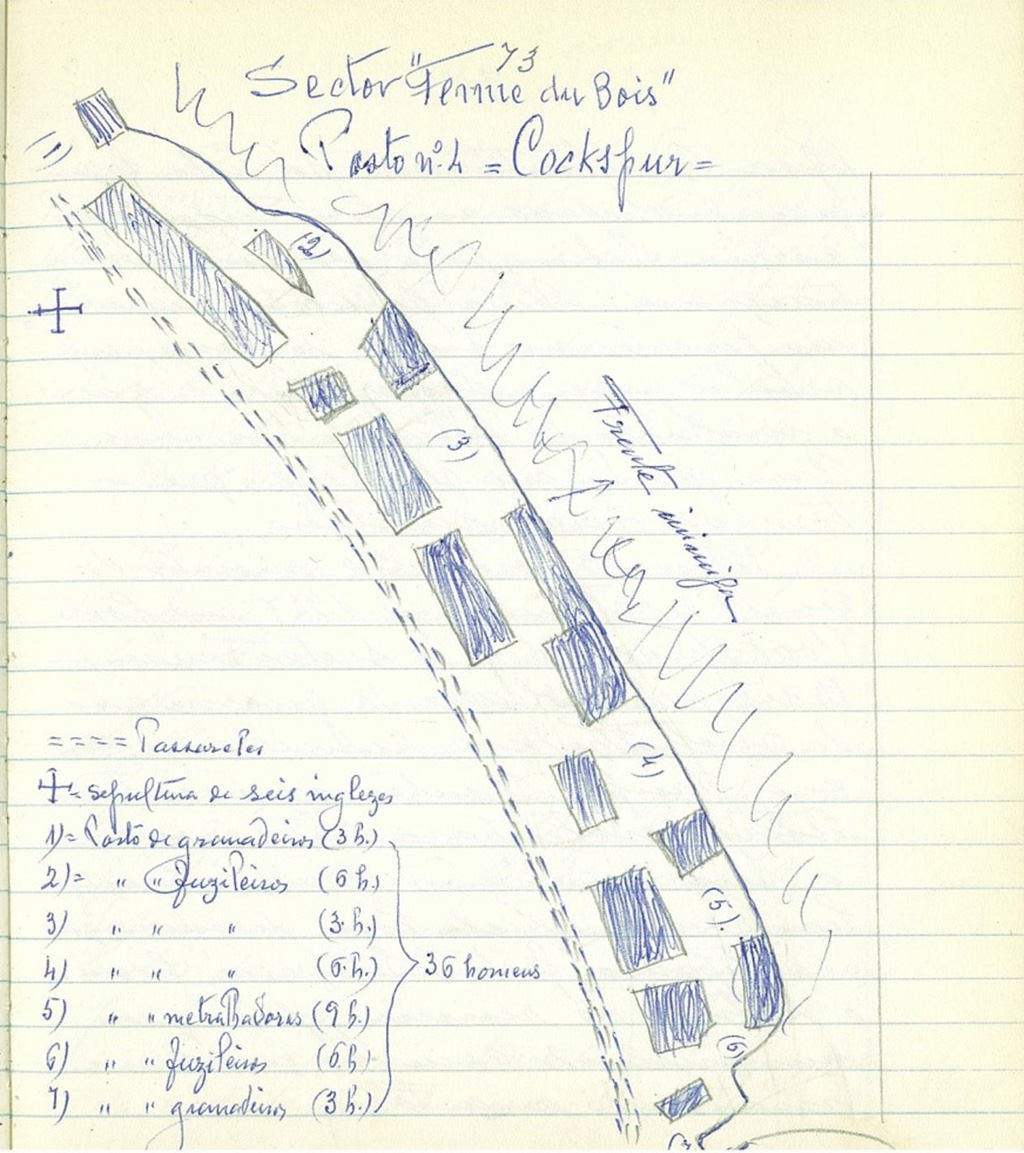 73
Sector "Ferme du Bois"
Posto nº 4 = Cockspur =
1)
(2)
(3)
Frente inimiga
(4)
(5).
(6)
==== Passarelles
= sepultura de seis inglezes
1) = Posto de granadeiros (3 h.)
2) = " " fuzileiros (6 h.)
3) " " " (3 h.)
4) " " " (6 h.)
36 homens
5) " " metralhadoras (9 h.)
6) " " fuzileiros (6 h.)
7) " " granadeiros (3 h.)